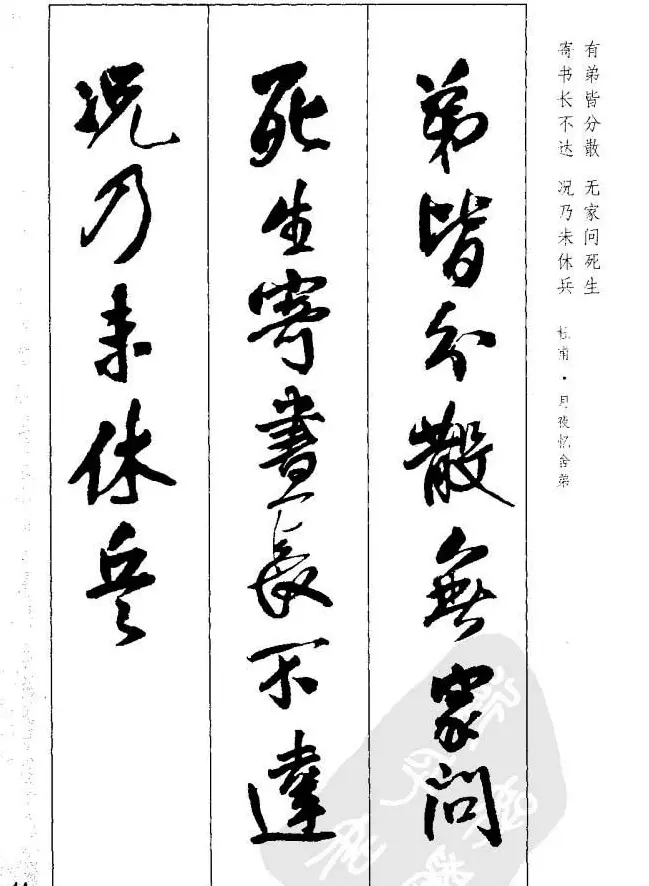 弟皆分散無家問
死生寄書長不達
况乃未休兵
有弟皆分散 无家问死生
寄书长不达 况乃未休兵
杜甫·月夜忆舍弟